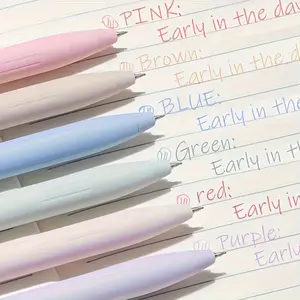 PINK:
Early in the da
Brown:
Early in the da
BLUE:
Early in the
Green:
Early in th
red:
Early in
Purple:
Early